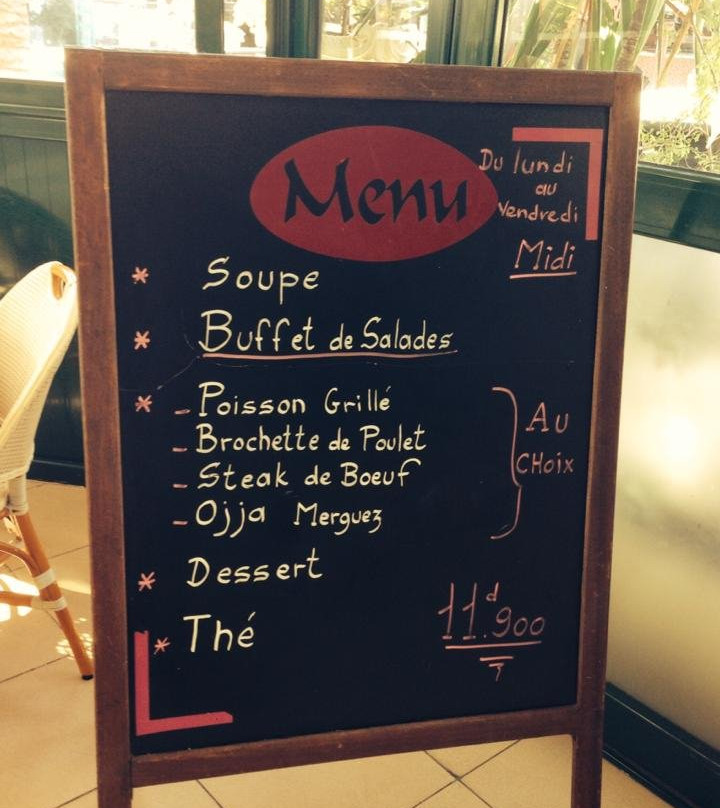 Menu
Du lundi
au
Vendredi
Midi
* Soupe
* Buffet de Salades
* - Poisson Grillé
- Brochette de Poulet
- Steak de Boeuf
- Ojja Merguez
Au
CHoix
* Dessert
* Thé
11.d900